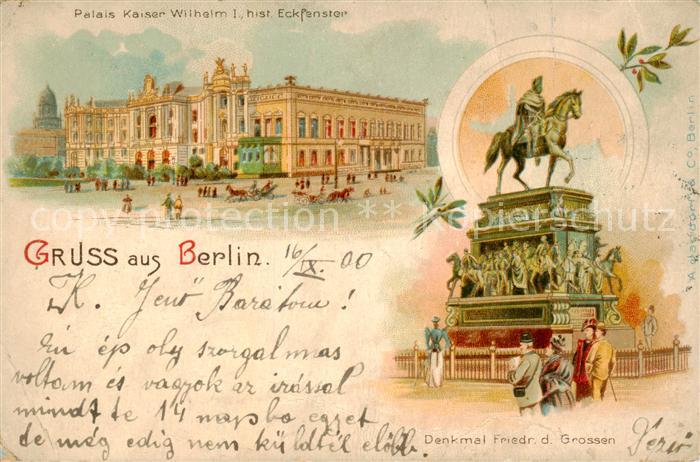 5.
Palais Kaiser Wilhelm I., hist. Eckfenster
GRUSS aus Berlin. 16/X. 00
K. Jenő Barátom!
Én ép oly szorgalmas
voltam és vagyok az irással
mindt te 14 napba egyet
de még edig nem küldtél előbb.
Denkmal Friedr. d. Grossen
Jenő
copy protection ** Kopierschutz
Co. Berlin